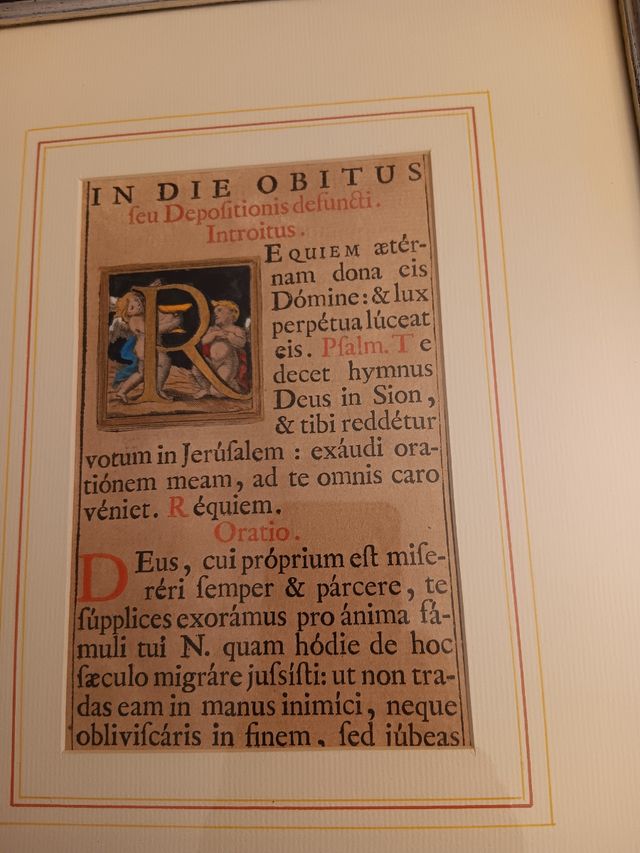 IN DIE OBITUS
ſeu Depoſitionis defuncti.
Introitus.
REQUIEM ætér-
nam dona eis
Dómine: & lux
perpétua lúceat
eis. Pſalm. Te
decet hymnus
Deus in Sion,
& tibi reddétur
votum in Jerúſalem : exáudi ora-
tiónem meam, ad te omnis caro
véniet. Réquiem.
Oratio.
DEus, cui próprium eſt miſe-
réri ſemper & párcere, te
ſúpplices exorámus pro ánima fá-
muli tui N. quam hódie de hoc
ſæculo migráre juſsíſti: ut non tra-
das eam in manus inimíci, neque
obliviſcáris in finem, ſed iúbeas